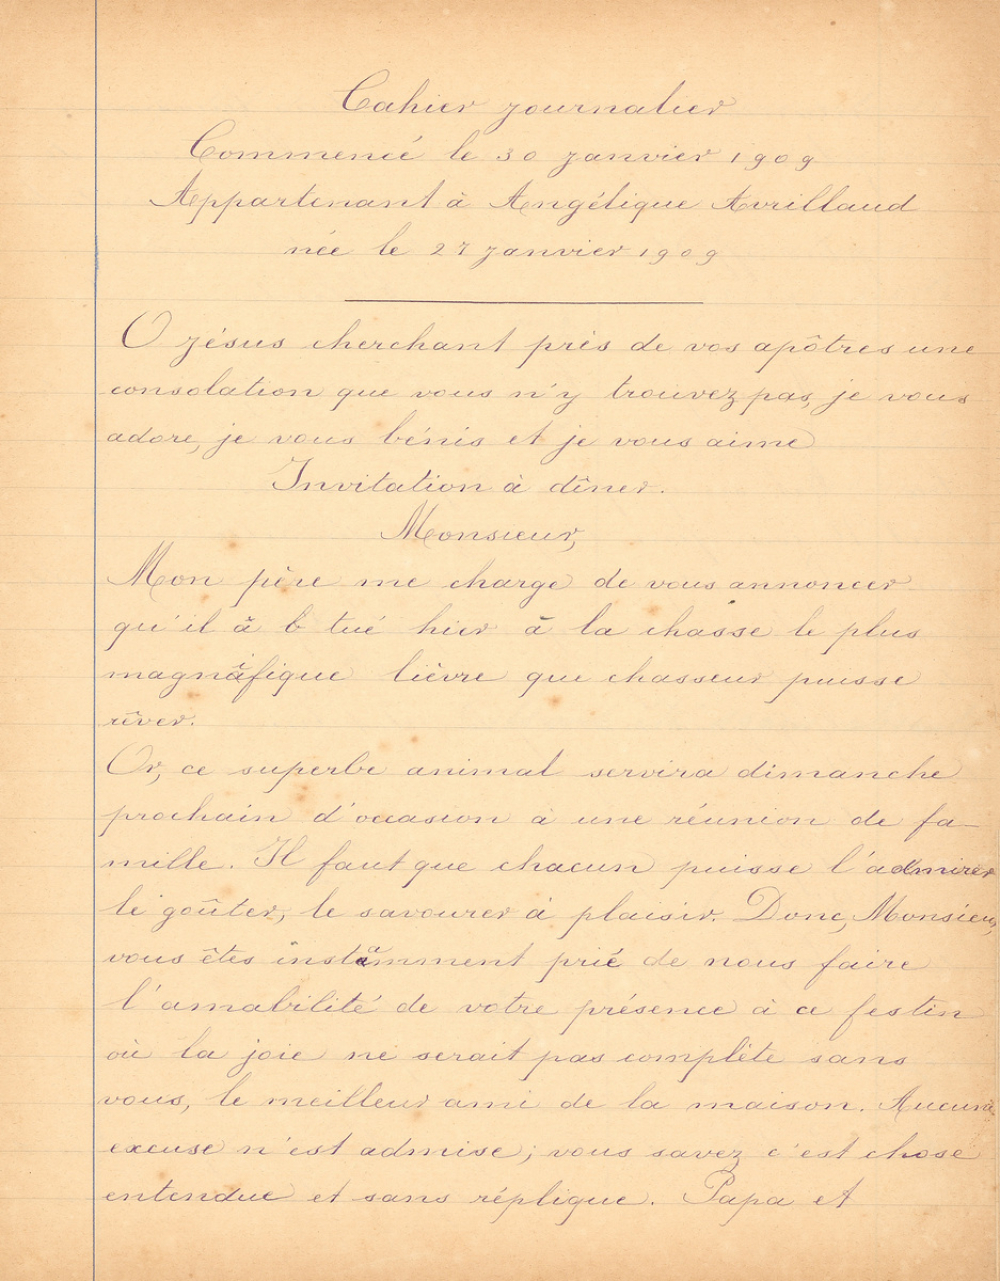 Cahier journalier
Commencé le 30 janvier 1909
Appartenant à Angélique Avrillaud
née le 27 janvier 1909
O Jésus cherchant près de vos apôtres une
consolation que vous n'y trouvez pas, je vous
adore, je vous bénis et je vous aime
Invitation à dîner.
Monsieur,
Mon père me charge de vous annoncer
qu'il à b tué hier à la chasse le plus
magnifique lièvre que chasseur puisse
rêver.
Or, ce superbe animal servira dimanche
prochain d'occasion à une réunion de fa-
mille. Il faut que chacun puisse l'admirer
le goûter, le savourer à plaisir. Donc, Monsieur,
vous êtes instamment prié de nous faire
l'amabilité de votre présence à ce festin
où la joie ne serait pas complète sans
vous, le meilleur ami de la maison. Aucune
excuse n'est admise; vous savez c'est chose
entendue et sans réplique. Papa et